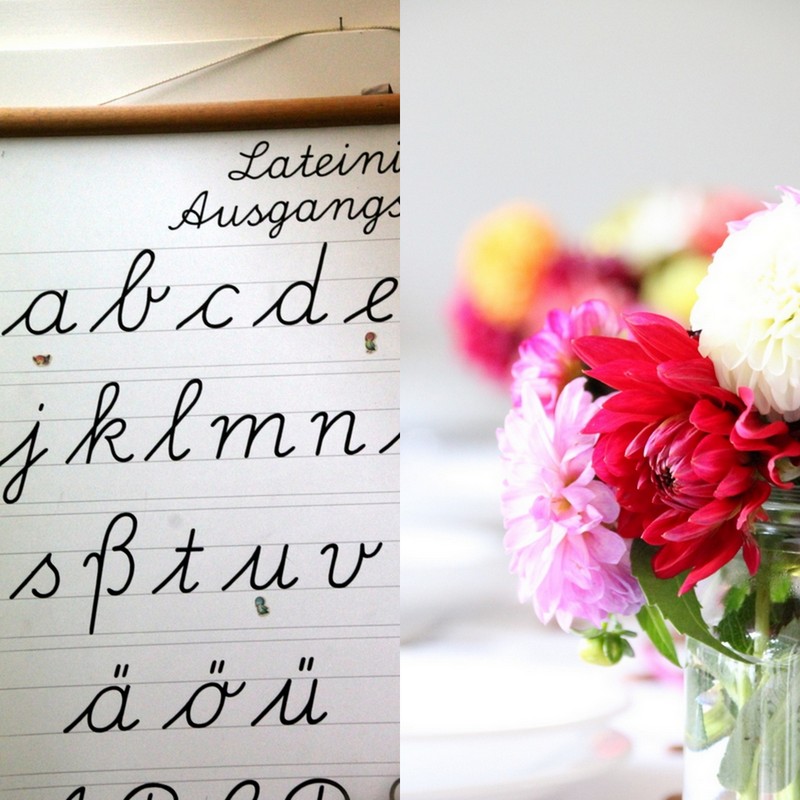 Lateini
Ausgangs
a b c d e
j k l m n
s ß t u v
ä ö ü